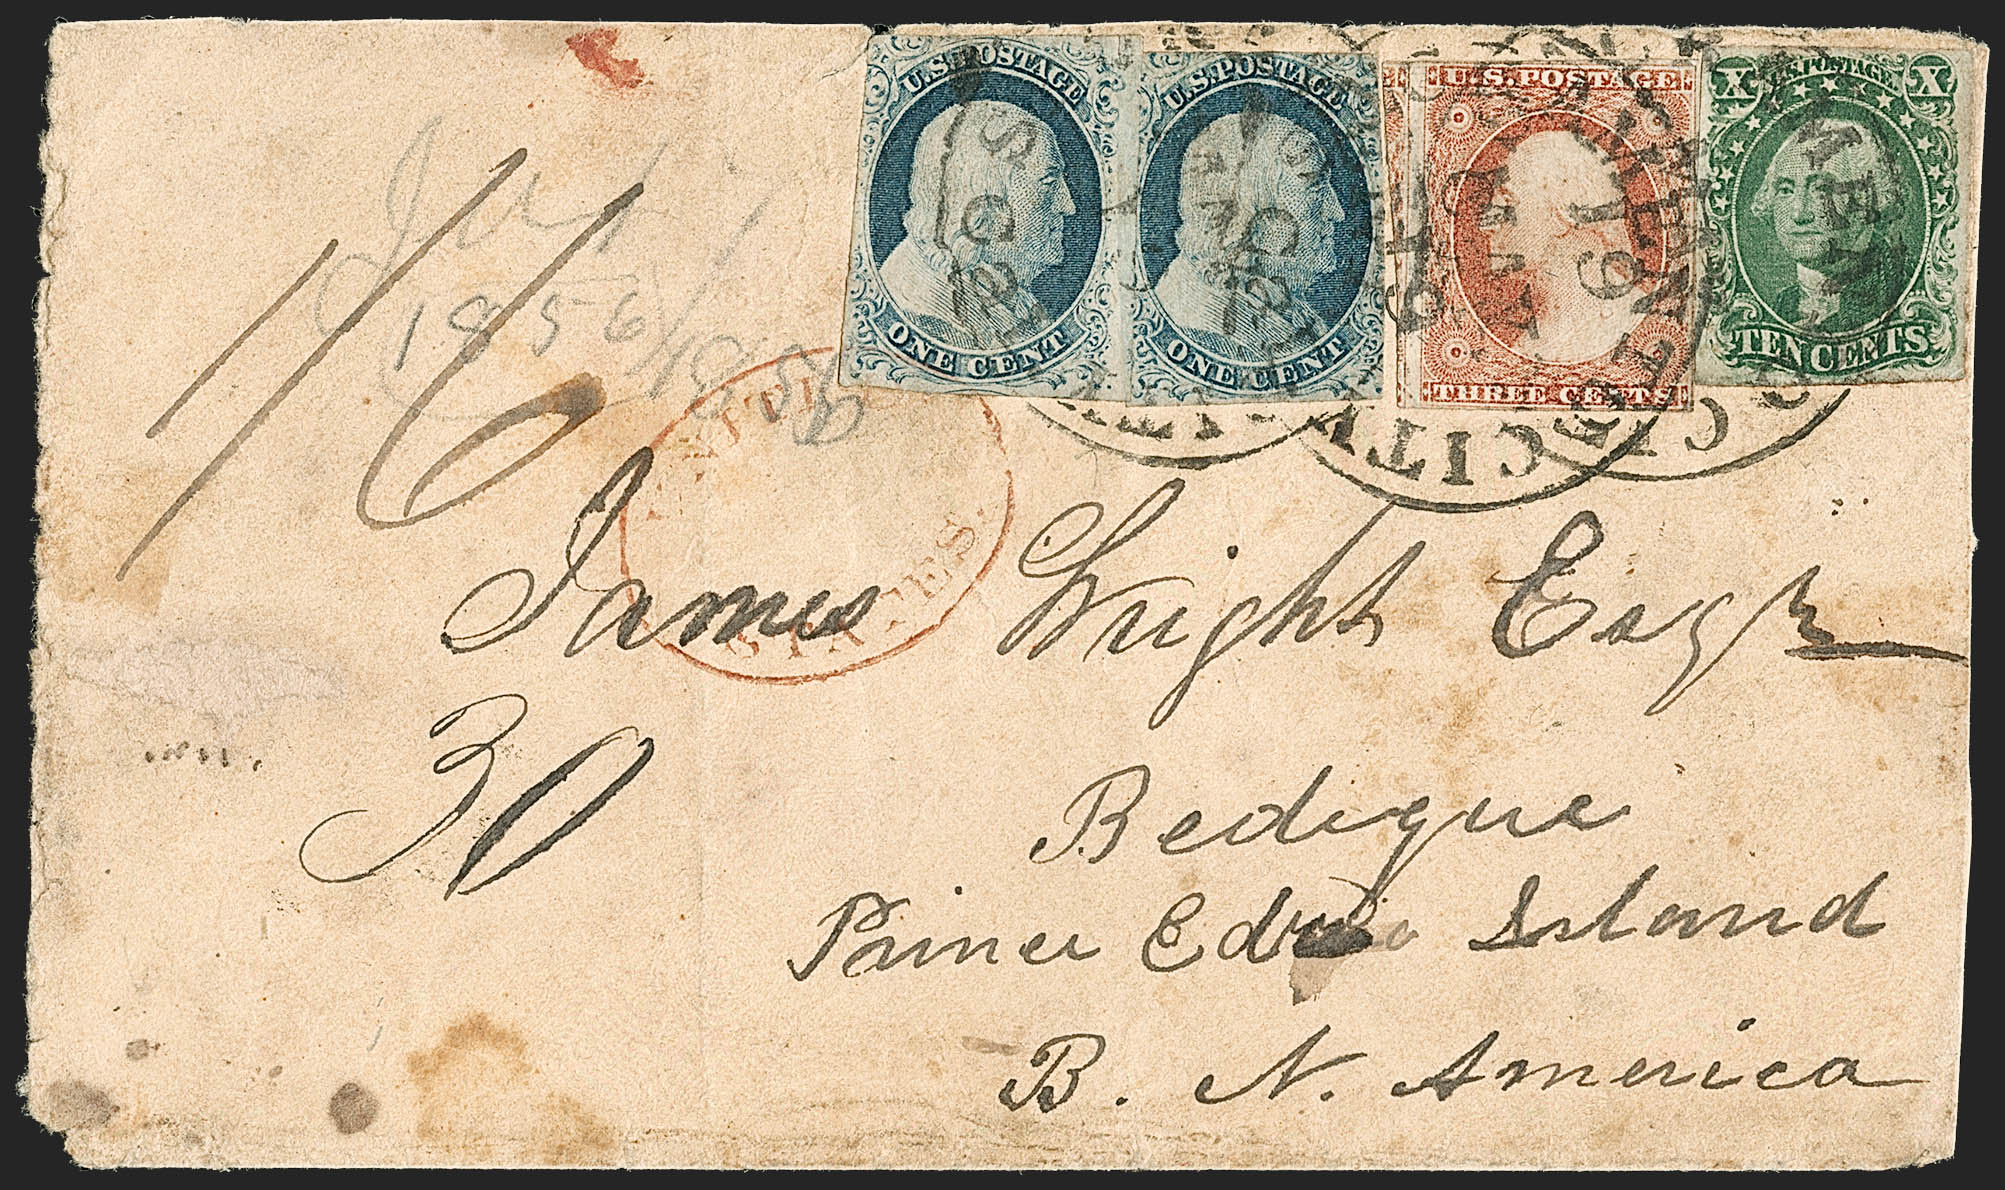 U.S. POSTAGE
ONE CENT
U.S. POSTAGE
ONE CENT
U.S. POSTAGE
THREE CENTS
X U.S. POSTAGE X
TEN CENTS
CITY
19
Jany
1856
1/6
UNITED STATES.
James Wright Esqr
30
Bedeque
Prince Edwd Island
B. N. America